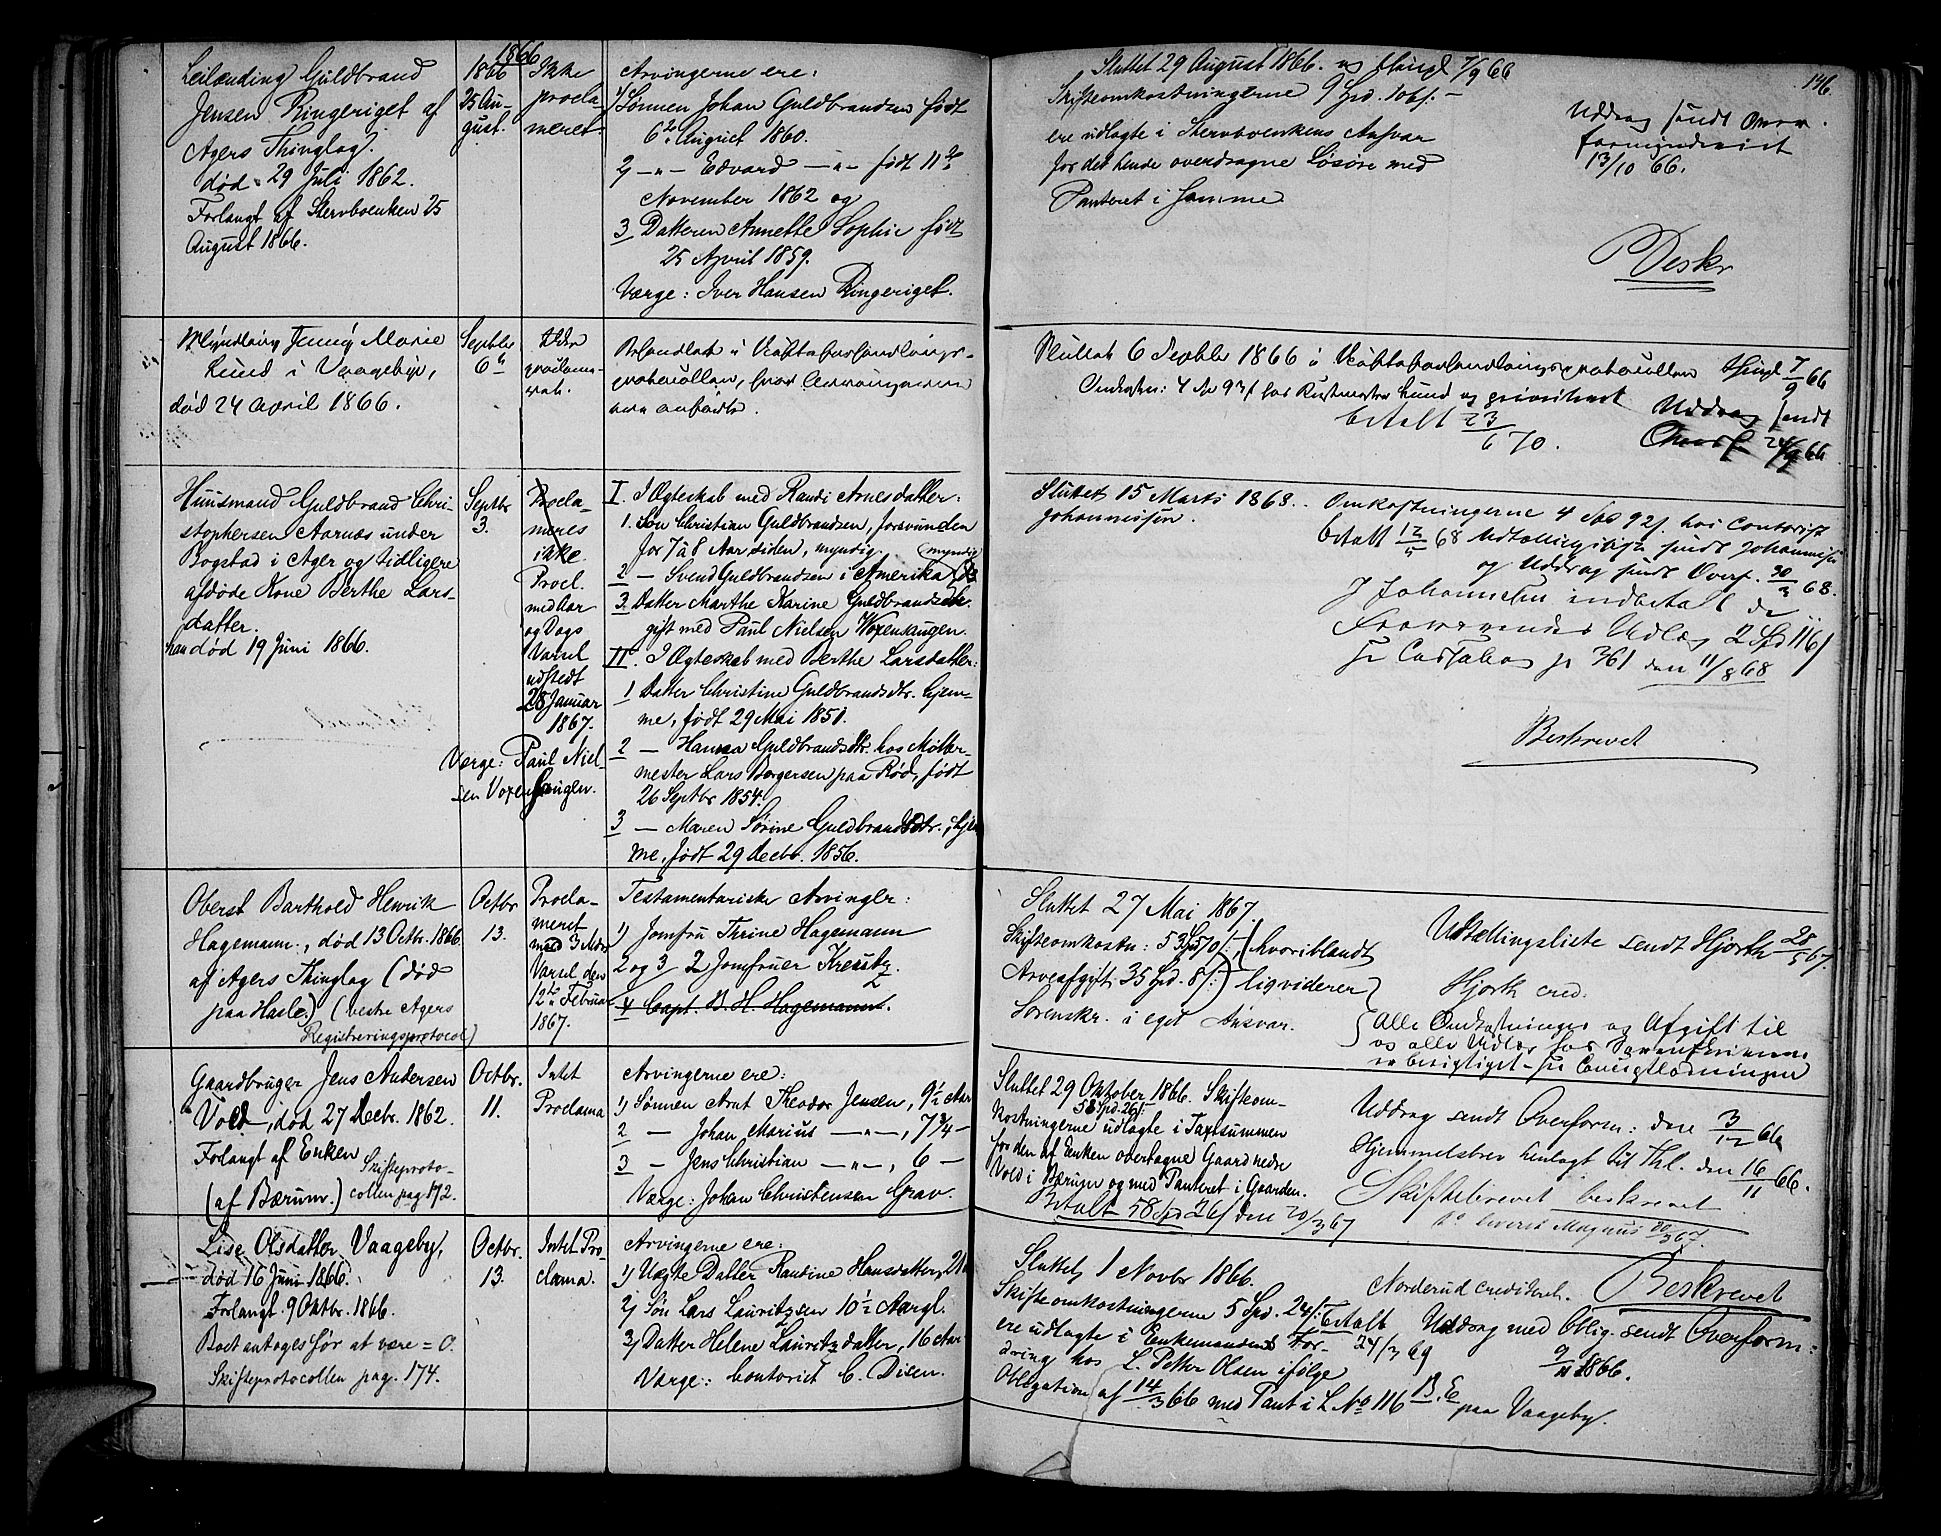 146
1866
Leilænding Guldbrand
Jensen Ringeriget af
Agers Thinglag.
død 29 Juli 1862.
Forlangt af Stervboenken 25
August 1866.
1866
25 Au-
gust.
Ikke
procla-
meret
Arvingerne ere:
1) Sønnen Johan Guldbrandsen født
6te August 1860.
2) — " — Edvard — " — født 11te
November 1862 og
3 Datteren Annette Sophie født
25 April 1859.
Værge: Iver Hansen Ringeriget.
Sluttet 29 August 1866. og 7/9 66
Skifteomkostningerne 9 Spd. 106 s. —
ere udlagte i Stervboenkens Ansvar
for det hende overdragne Løsøre med
Panteret i samme
Uddrag sendt Over-
formynderiet
13/10 66.
Beskr
Myndling Jenny Marie
Lund i Vaagebyn,
død 24 April 1866.
Septbr
6te
Uden
proclama-
Behandlet i Skifteforhandlings-
protocollen, hvor Arvingerne
ere anførte.
Sluttet 6 Septbr 1866 i Skifteforhandlingsprotocollen 7/9 66
Omkostn: 4 93 s hos Rustmester Lund og prioriteret
betalt 23/6 70.
Uddrag sendt
Overf 24/9 66
Huusmand Guldbrand Chri-
stophersen Aarnæs under
Bogstad i Ager og tidligere
afdøde Kone Berthe Lars-
datter.
han død 19 Juni 1866.
Septbr
3.
Procla-
meres
ikke.
Procl.
med Aar
og Dags
Varsel
udstedt
28 Januar
1867.
Værge: Paul Niel-
sen Voxenhaugen.
I. I Ægteskab med Randi Arnesdatter:
1. Søn Christian Guldbrandsen, forsvunden
for 7 à 8 Aar siden, myndig.
2 — Svend Guldbrandsen i Amerika (myndig
3. Datter Marthe Karine Guldbrandsdtr.
gift med Paul Nielsen Voxenhaugen.
II. I Ægteskab med Berthe Larsdatter:
1 Datter Christine Guldbrandsdtr. hjem-
me, født 29 Mai 1851.
2 — Hanna Guldbrandsdtr. hos Møller-
mester Lars Børgersen paa Rød, født
26 Septbr 1854.
3 — Maren Sørine Guldbrandsdtr., hjem
me, født 29 Decbr. 1856.
Sluttet 15 Marts 1868.
Johannissen.
Omkostningerne 4 Spd 92 s. hos Contorist
betalt 12/5 68 Udtællingsliste sendt Johannissen
og Uddrag sendt Overf. 30/3 68.
J Johannesen indbetalt de
Udlæg 2 Spd 116 s
pr Cassabog p 361 den 11/8 68
Beskrevet
Oberst Barthold Henrik
Hagemann, død 13 Octbr. 1866
af Agers Thinglag (død
paa Hasle.) (vestre Agers
Registreringsprotocol)
Octbr
13.
Procla-
meret
med 3 Mdrs
Varsel den
12te Februar
1867.
Testamentariske Arvinger:
1) Jomfru Thrine Hagemann
2 og 3 2 Jomfruer Kreutz.
4 Capt. B. H. Hagemann.
Sluttet 27 Mai 1867.
Skifteomkostn: 53 Spd 70 s. hvoriblandt
Arveafgift 35 Spd. 8 s. ligviderer
Sorenskr. i eget Ansvar.
Udtællingsliste sendt Hjorth 28/5 67.
Hjorth cred.
Alle Omkostninger og Afgift til
og alle Udlæg hos Sorenskriveren
Gaardbruger Jens Andersen
Vold, død 27 Decbr. 1862.
Forlangt af Enken
(af Bærum.)
Skifteproto-
collen pag 172.
Octbr.
11.
Intet
Proclama
Arvingerne ere:
1) Sønnen Arnt Theodor Jensen, 9½ Aar
2 — Johan Marius — " —, 7¾ —
3 — Jens Christian — " —, 6 —
Værge: Johan Christensen Grav.
Sluttet 29 Oktober 1866. Skifteom-
58 Spd. 26 s.
kostningerne udlagte i Taxtsummen
for den af Enken overtagne Gaard nedre
Vold i Bærum og med Panteret i Gaarden.
Betalt 58 Spd 26 s den 20/3 67
Uddrag sendt Overform: den 3/12 66
Hjemmelsbrev henlagt til Thl. den 16/11 66.
Skiftebrevet beskrevet
Magnus 20/3 67.
Lise Olsdatter Vaageby,
død 16 Juni 1866.
Forlangt 9 Oktbr. 1866.
Boet antages før at være = 0.
Skifteprotocollen pag. 174.
Octbr.
13.
Intet Pro-
clama.
Arvingerne ere:
1) Uægte Datter Randine Hansdatter, 21
2) Søn Lars Lauritzsen 10½ Aar gl.
3) Datter Helene Lauritzdatter, 16 Aar
Værge: Contorist C. Disen.
Sluttet 1 Novbr 1866.
Skifteomkostningerne 5 Spd. 24 s: betalt
ere udlagte i Enkemandens For- 24/3 69
dring hos L. Petter Olsen ifølge
Obligation af 14/3 66 med Pant i L. No 116 B. E paa Vaageby.
Norderud crediteret.
Beskrevet
Uddrag med Oblig. sendt Overform:
9/11 1866.